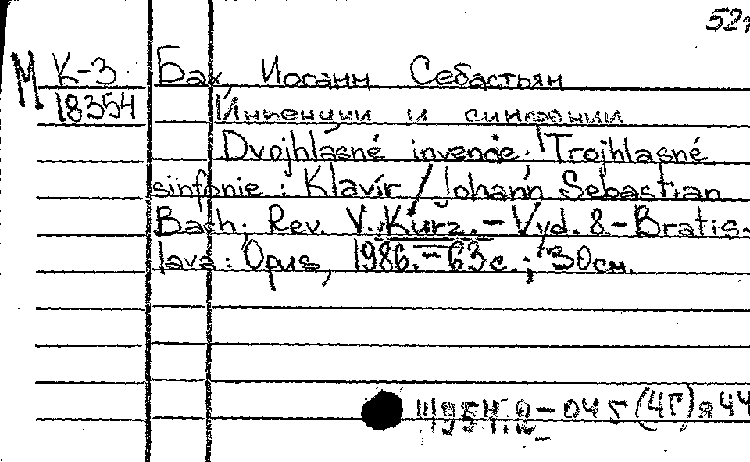 521
М К-3 Бах, Иоганн Себастьян
18354 Инвенции и синфонии
Dvojhlasné invencie; Trojhlasné
sinfonie : Klavír / Johann Sebastian
Bach; Rev. V. Kurz. - Vyd. 8. - Bratis-
lava : Opus, 1986. - 63 с. ; 30 см.
Щ954.2-045(4Г)я44